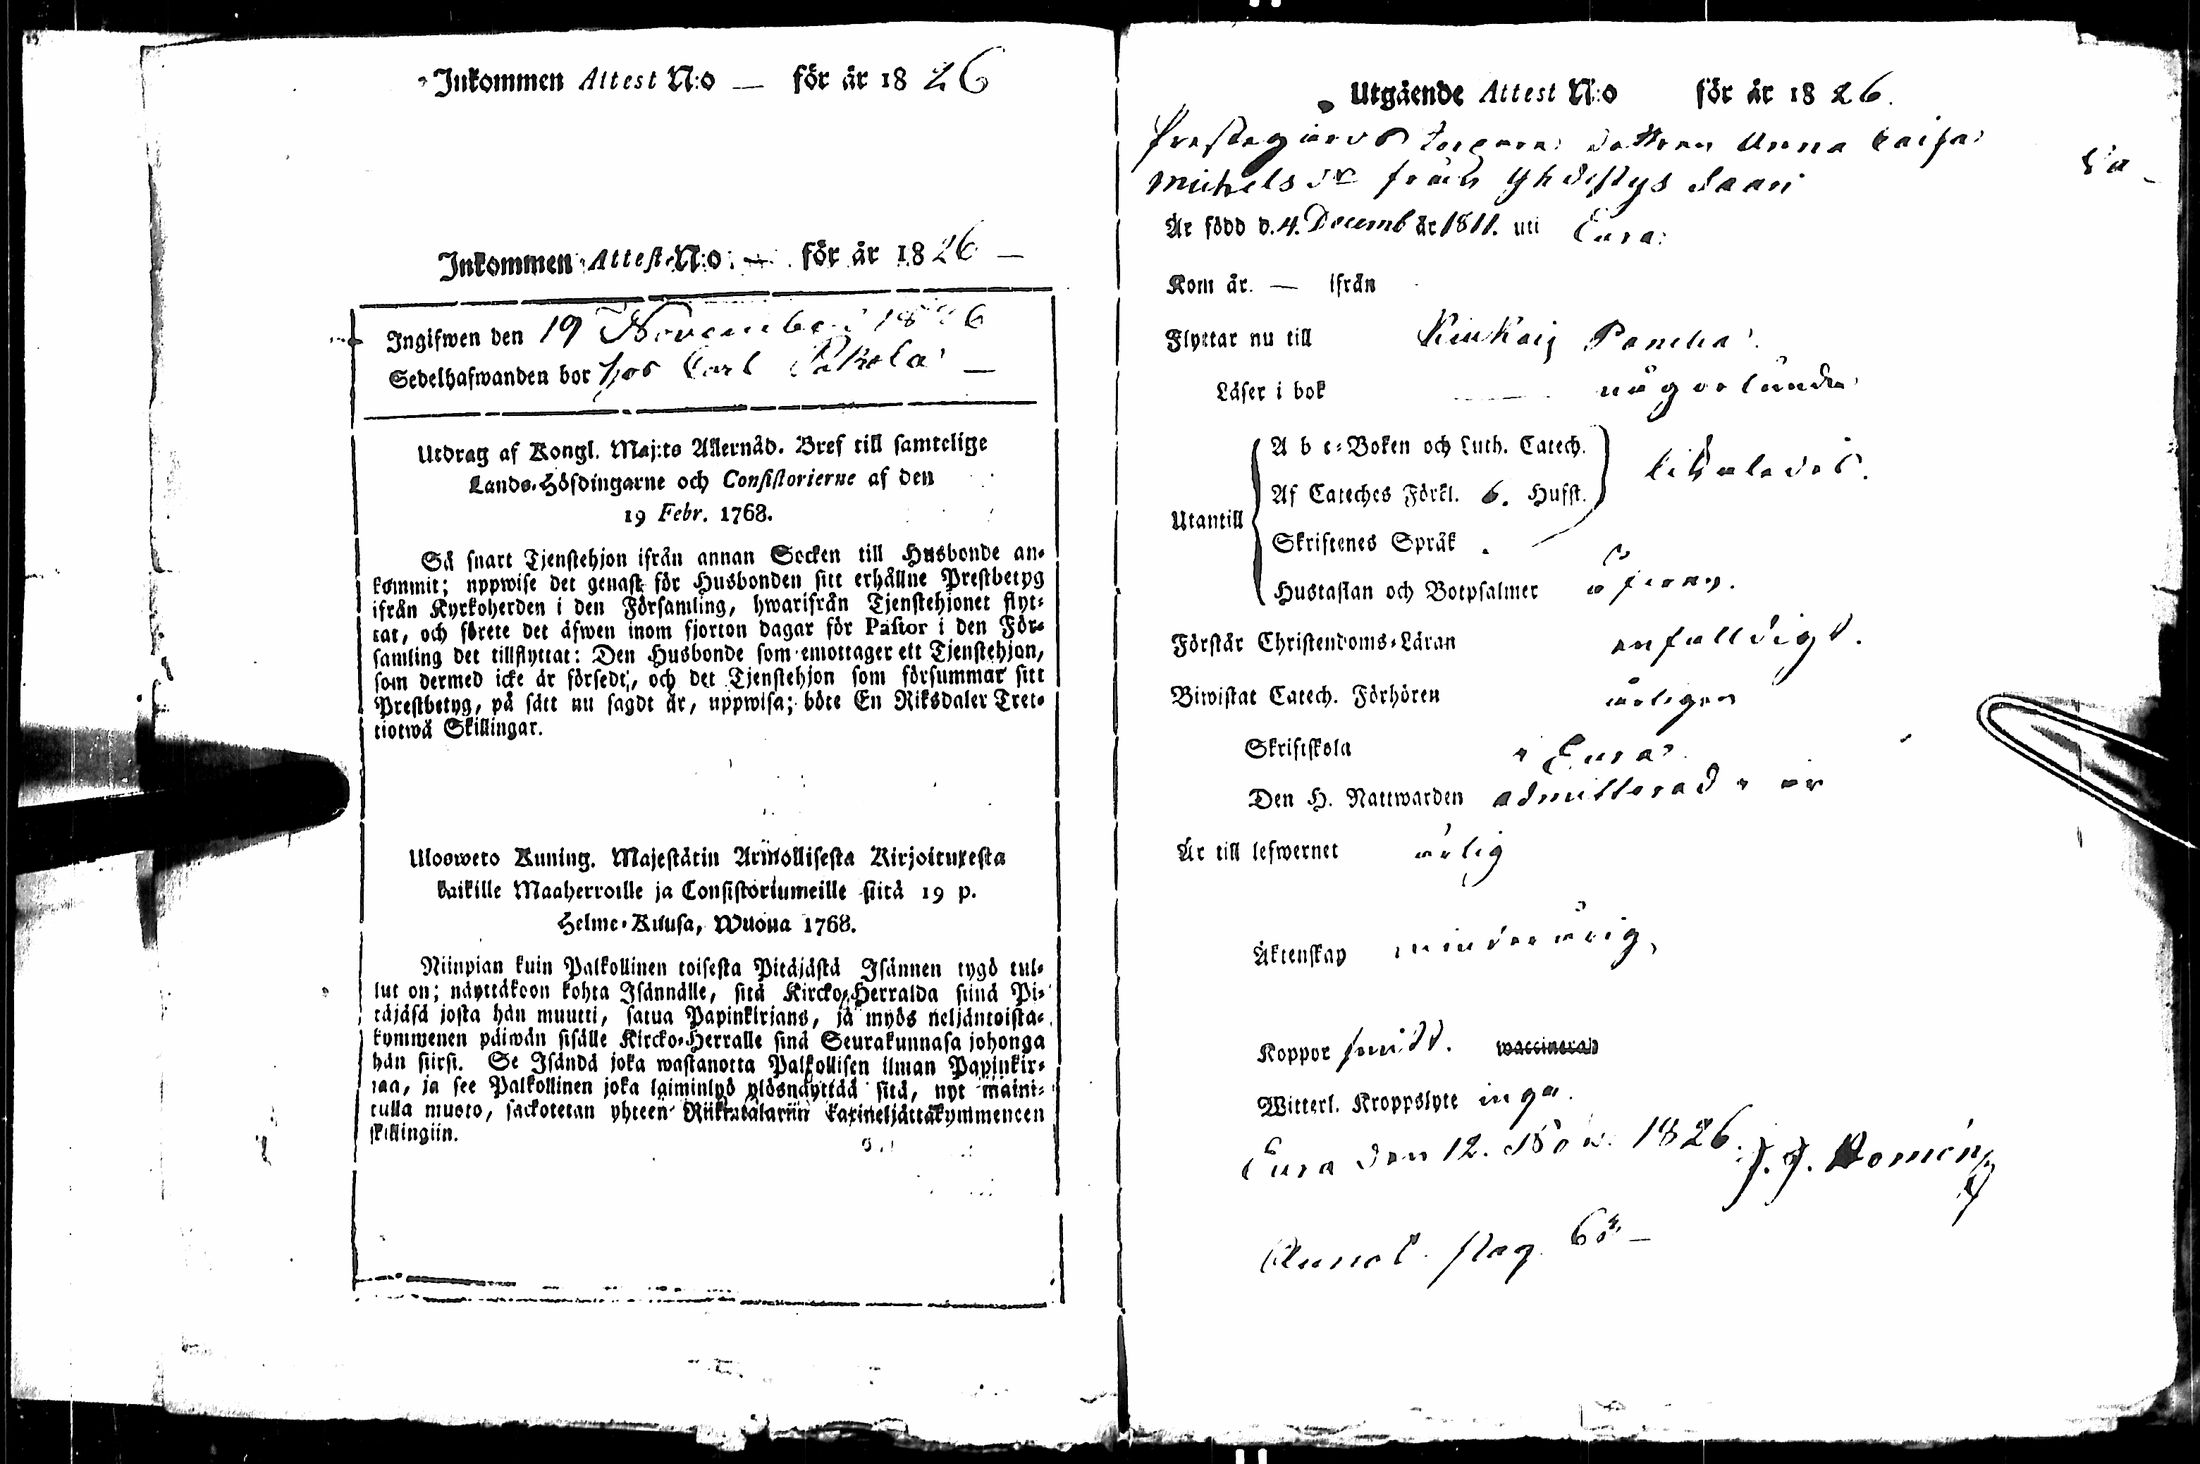 Inkommen Attest N:o — för år 1826
Inkommen Attest N:o — för år 1826 —
Ingifwen den 19 November 1826
Sedelhafwanden bor hos Carl Pakola —
Utdrag af Kongl. Maj:ts Allernåd. Bref till samtelige
Lands-Höfdingarne och Consistorierne af den
19 Febr. 1768.
Så snart Tjenstehjon ifrån annan Socken till Husbonde an-
kommit; uppwise det genast för Husbonden sitt erhållne Prestbetyg
ifrån Kyrkoherden i den Församling, hwarifrån Tjenstehjonet flyt-
tat, och förete det äfwen inom fjorton dagar för Pastor i den För-
samling det tillflyttat: Den Husbonde som emottager ett Tjenstehjon,
som dermed icke är försedt, och det Tjenstehjon som försummar sitt
Prestbetyg, på sätt nu sagdt är, uppwisa; böte En Riksdaler Tret-
tiotwå Skillingar.
Ulosweto Kuning. Majestätin Armollisesta Kirjoituxesta
kaikille Maaherroille ja Consistoriumeille siitä 19 p.
Helme-Kuusa, Wuona 1768.
Niinpian kuin Palkollinen toisesta Pitäjästä Isännen tygö tul-
lut on; näyttäkoon kohta Isännälle, sitä Kircko-Herralda siinä Pi-
täjäsä josta hän muutti, satua Papinkirjans, ja myös neljäntoista-
kymmenen päiwän sisälle Kircko-Herralle sinä Seurakunnasa johonga
hän siirsi. Se Isändä joka wastanotta Palkollisen ilman Papinkir-
jaa, ja see Palkollinen joka laiminlyö ylösnäyttää sitä, nyt maini-
tulla muoto, sackotetan yhteen Riikintalariin kaxineljättäkymmeneen
skillingiin.
Utgående Attest N:o för år 1826.
dottren Anna Caisa
Michels dr från Yhdistys
Är född d. 4. Decemb år 1811. uti Eura
Kom år. — ifrån
Flyttar nu till Kiukais Panelia
Läser i bok någorlunda
Utantill
A b c-Boken och Luth. Catech.
Af Cateches Förkl. 6. Hufst. likaledes.
Skriftenes Språk
Hustaflan och Botpsalmer
Förstår Christendoms-Läran enfalldigt.
Biwistat Catech. Förhören årligen
Skriftskola i Eura
Den H. Nattwarden admitterad i år
Är till lefwernet ärlig
Äktenskap minderårig,
Koppor waccinerad
Witterl. Kroppslyte inga.
Eura den 12. Nov. 1826. J. J. Roménz